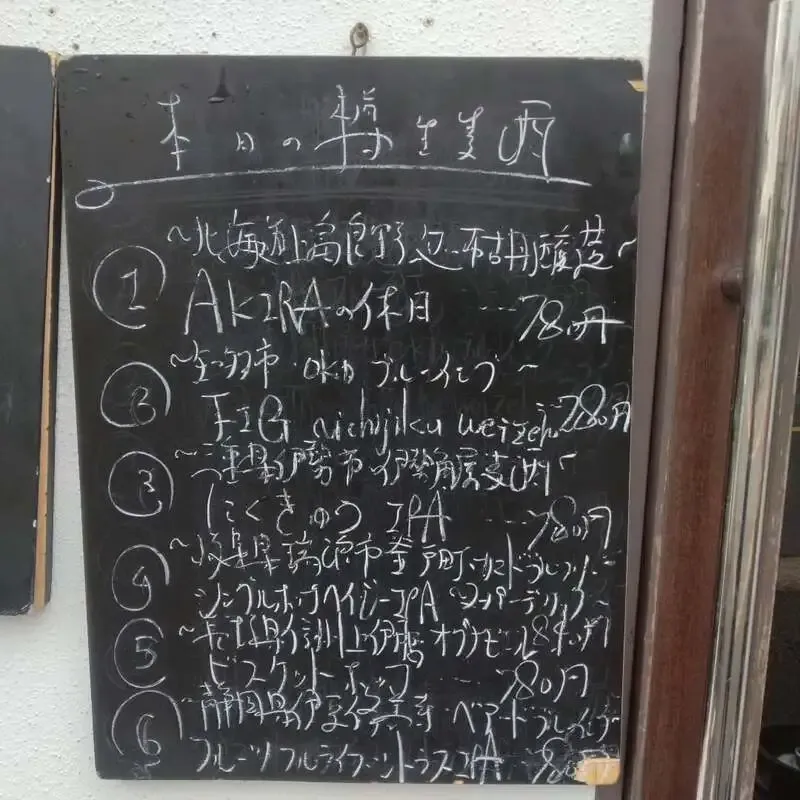 本日の樽生麦酒
① ~北海道上富良野 忽布古丹醸造~
AKIRAの休日 … 780円
② ブルーイング~
FIG nichijiku weizen … 780円
③ ~三重県伊勢市 伊勢角屋麦酒~
にくきゅう IPA … 780円
④ ~岐阜県瑞浪市釜戸町 カマドブリュワリー
シングルホップヘイジーIPA
⑤ ~長野県信州上伊那 オブナビール 840円
ビスケットホップ … 780円
⑥ ~静岡県伊豆修善寺・ベアードブルーイング~
フルーツフルライフシトラスIPA 980円